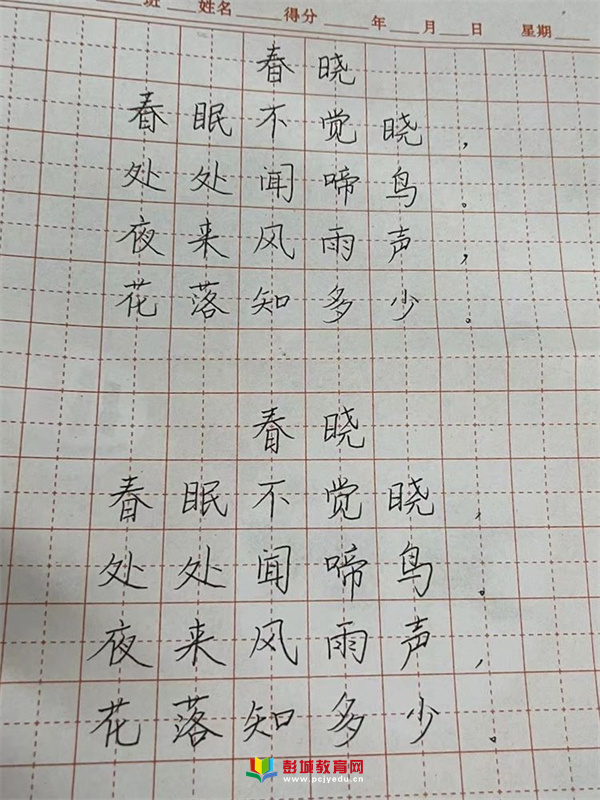 班 姓名 得分 年 月 日 星期
春晓
春眠不觉晓，
处处闻啼鸟。
夜来风雨声，
花落知多少。
春晓
春眠不觉晓，
处处闻啼鸟。
夜来风雨声，
花落知多少。
彭城教育网
www.pcjyedu.cn